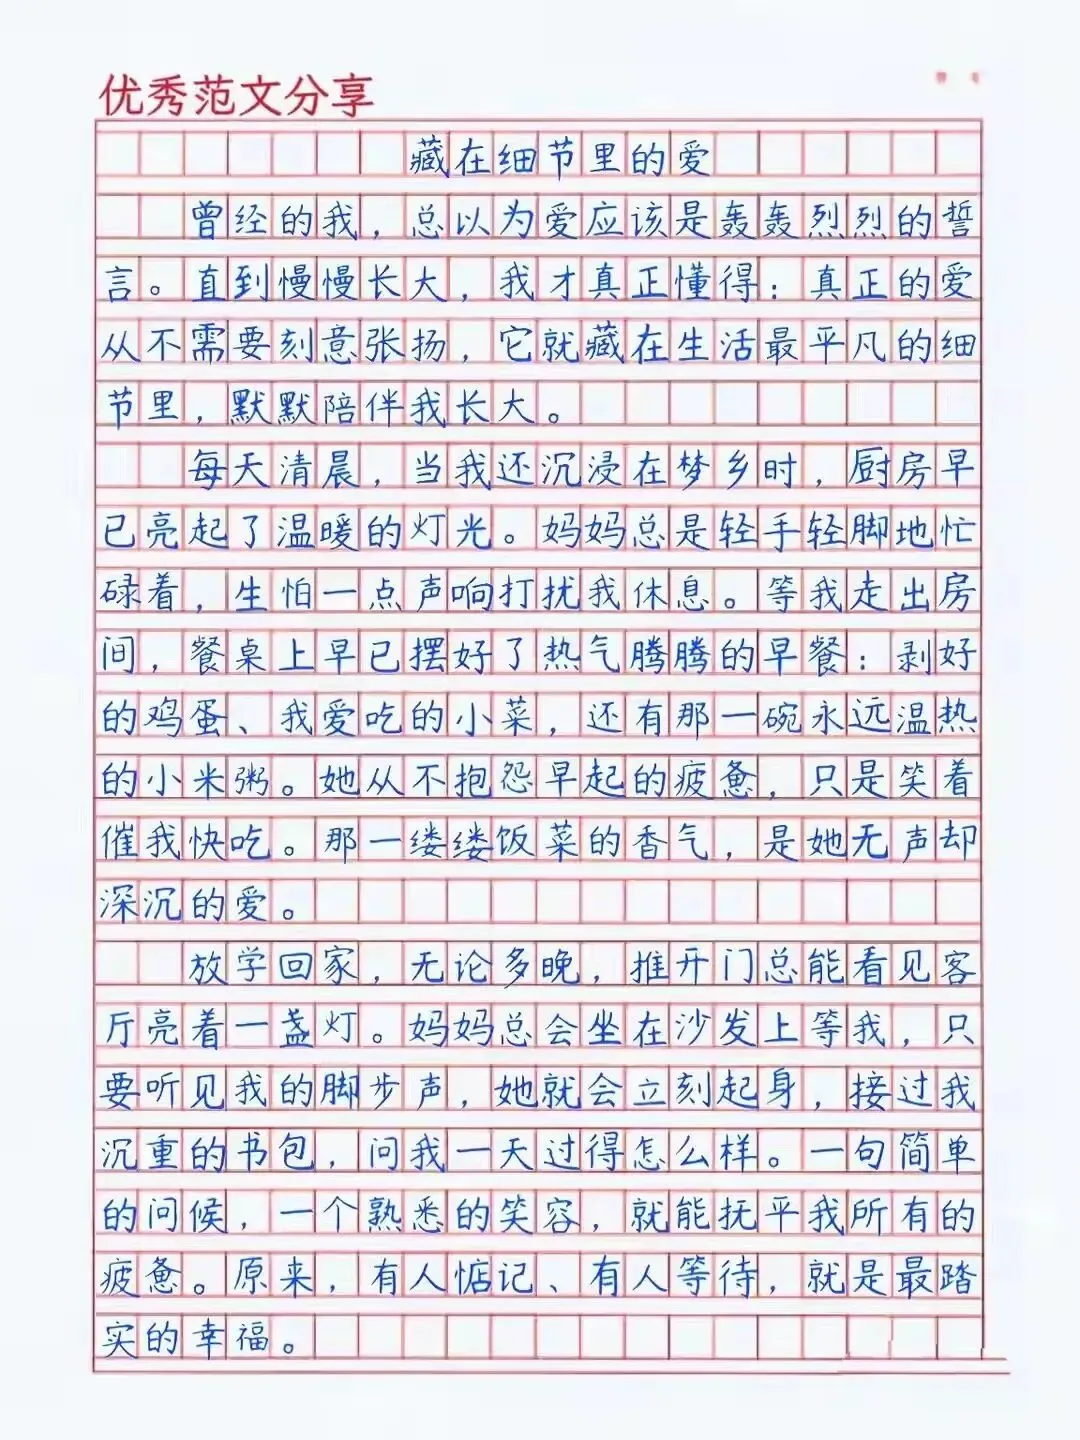 优秀范文分享
藏在细节里的爱
曾经的我，总以为爱应该是轰轰烈烈的誓
言。直到慢慢长大，我才真正懂得：真正的爱
从不需要刻意张扬，它就藏在生活最平凡的细
节里，默默陪伴我长大。
每天清晨，当我还沉浸在梦乡时，厨房早
已亮起了温暖的灯光。妈妈总是轻手轻脚地忙
碌着，生怕一点声响打扰我休息。等我走出房
间，餐桌上早已摆好了热气腾腾的早餐：剥好
的鸡蛋、我爱吃的小菜，还有那一碗永远温热
的小米粥。她从不抱怨早起的疲惫，只是笑着
催我快吃。那一缕缕饭菜的香气，是她无声却
深沉的爱。
放学回家，无论多晚，推开门总能看见客
厅亮着一盏灯。妈妈总会坐在沙发上等我，只
要听见我的脚步声，她就会立刻起身，接过我
沉重的书包，问我一天过得怎么样。一句简单
的问候，一个熟悉的笑容，就能抚平我所有的
疲惫。原来，有人惦记、有人等待，就是最踏
实的幸福。